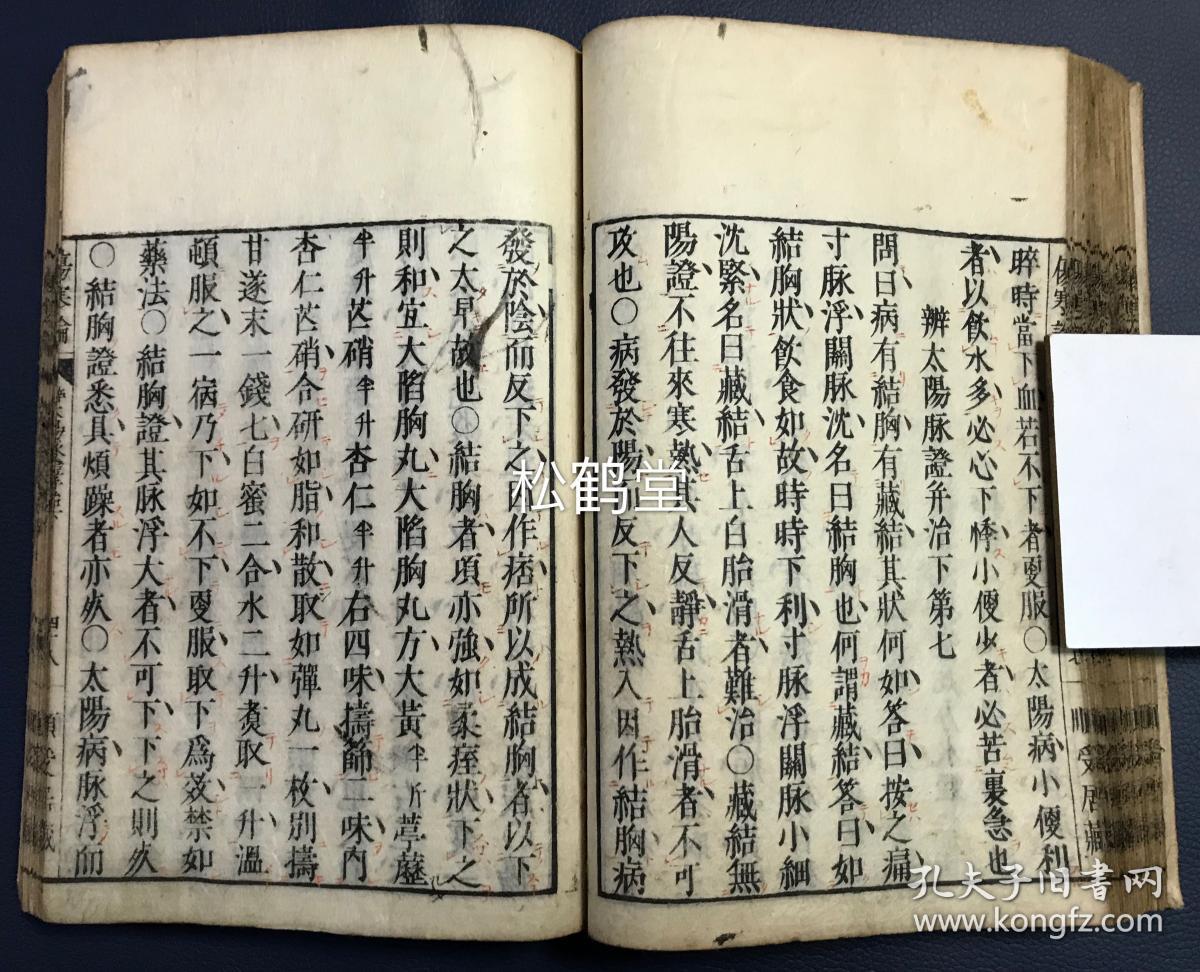 晬時當下血若不下者更服〇太陽病小便利
者以飲水多必心下悸小便少者必苦裏急也
辨太陽脉證并治下第七
問曰病有結胸有藏結其狀何如答曰按之痛
寸脉浮關脉沈名曰結胸也何謂藏結答曰如
結胸狀飲食如故時時下利寸脉浮關脉小細
沈緊名曰藏結舌上白胎滑者難治〇藏結無
陽證不往來寒熱其人反靜舌上胎滑者不可
攻也〇病發於陽而反下之熱入因作結胸病
發於陰而反下之因作痞所以成結胸者以下
之太早故也〇結胸者項亦強如柔痓狀下之
則和宜大陷胸丸大陷胸丸方大黃半斤葶藶
半升芒硝半升杏仁半升右四味擣篩二味內
杏仁芒硝合研如脂和散取如彈丸一枚別擣
甘遂末一錢匕白蜜二合水二升煑取一升溫
頓服之一宿乃下如不下更服取下爲效禁如
藥法〇結胸證其脉浮大者不可下下之則死
〇結胸證悉具煩躁者亦死〇太陽病脉浮而
傷寒論
松鹤堂
孔夫子旧书网
www.kongfz.com